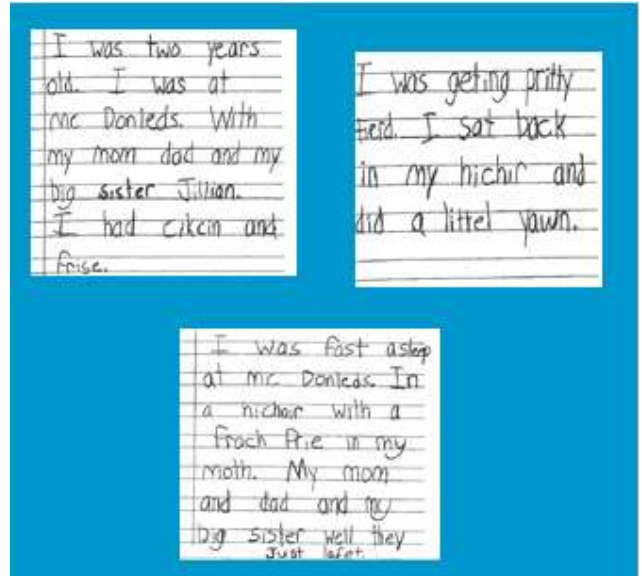 I was two years
old. I was at
mc Donleds. With
my mom dad and my
big sister Jillian.
I had cikcin and
frise.
I was geting pritty
tierd. I sat back
in my hichir and
did a littel yawn.
I was fast asleep
at mc Donleds. In
a hichair with a
frach frie in my
moth. My mom
and dad and my
big sister well they
Just lafet.